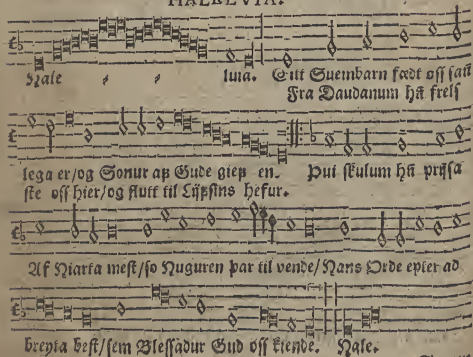 HALLELVIA.
Hale ⸗ ⸗ luia. Eitt Sueinbarn fædt oss sañ
Fra Daudanum hñ frels
lega er/og Sonur aß Gude gieß en.
ste oss hier/og flutt til Lijfsins hefur.
Þui skulum hñ prijsa
Af Hiarta mest/so Huguren þar til vende/Hans Orde epter ad
breyta best/sem Blessadur Gud oss kiende. Hale.